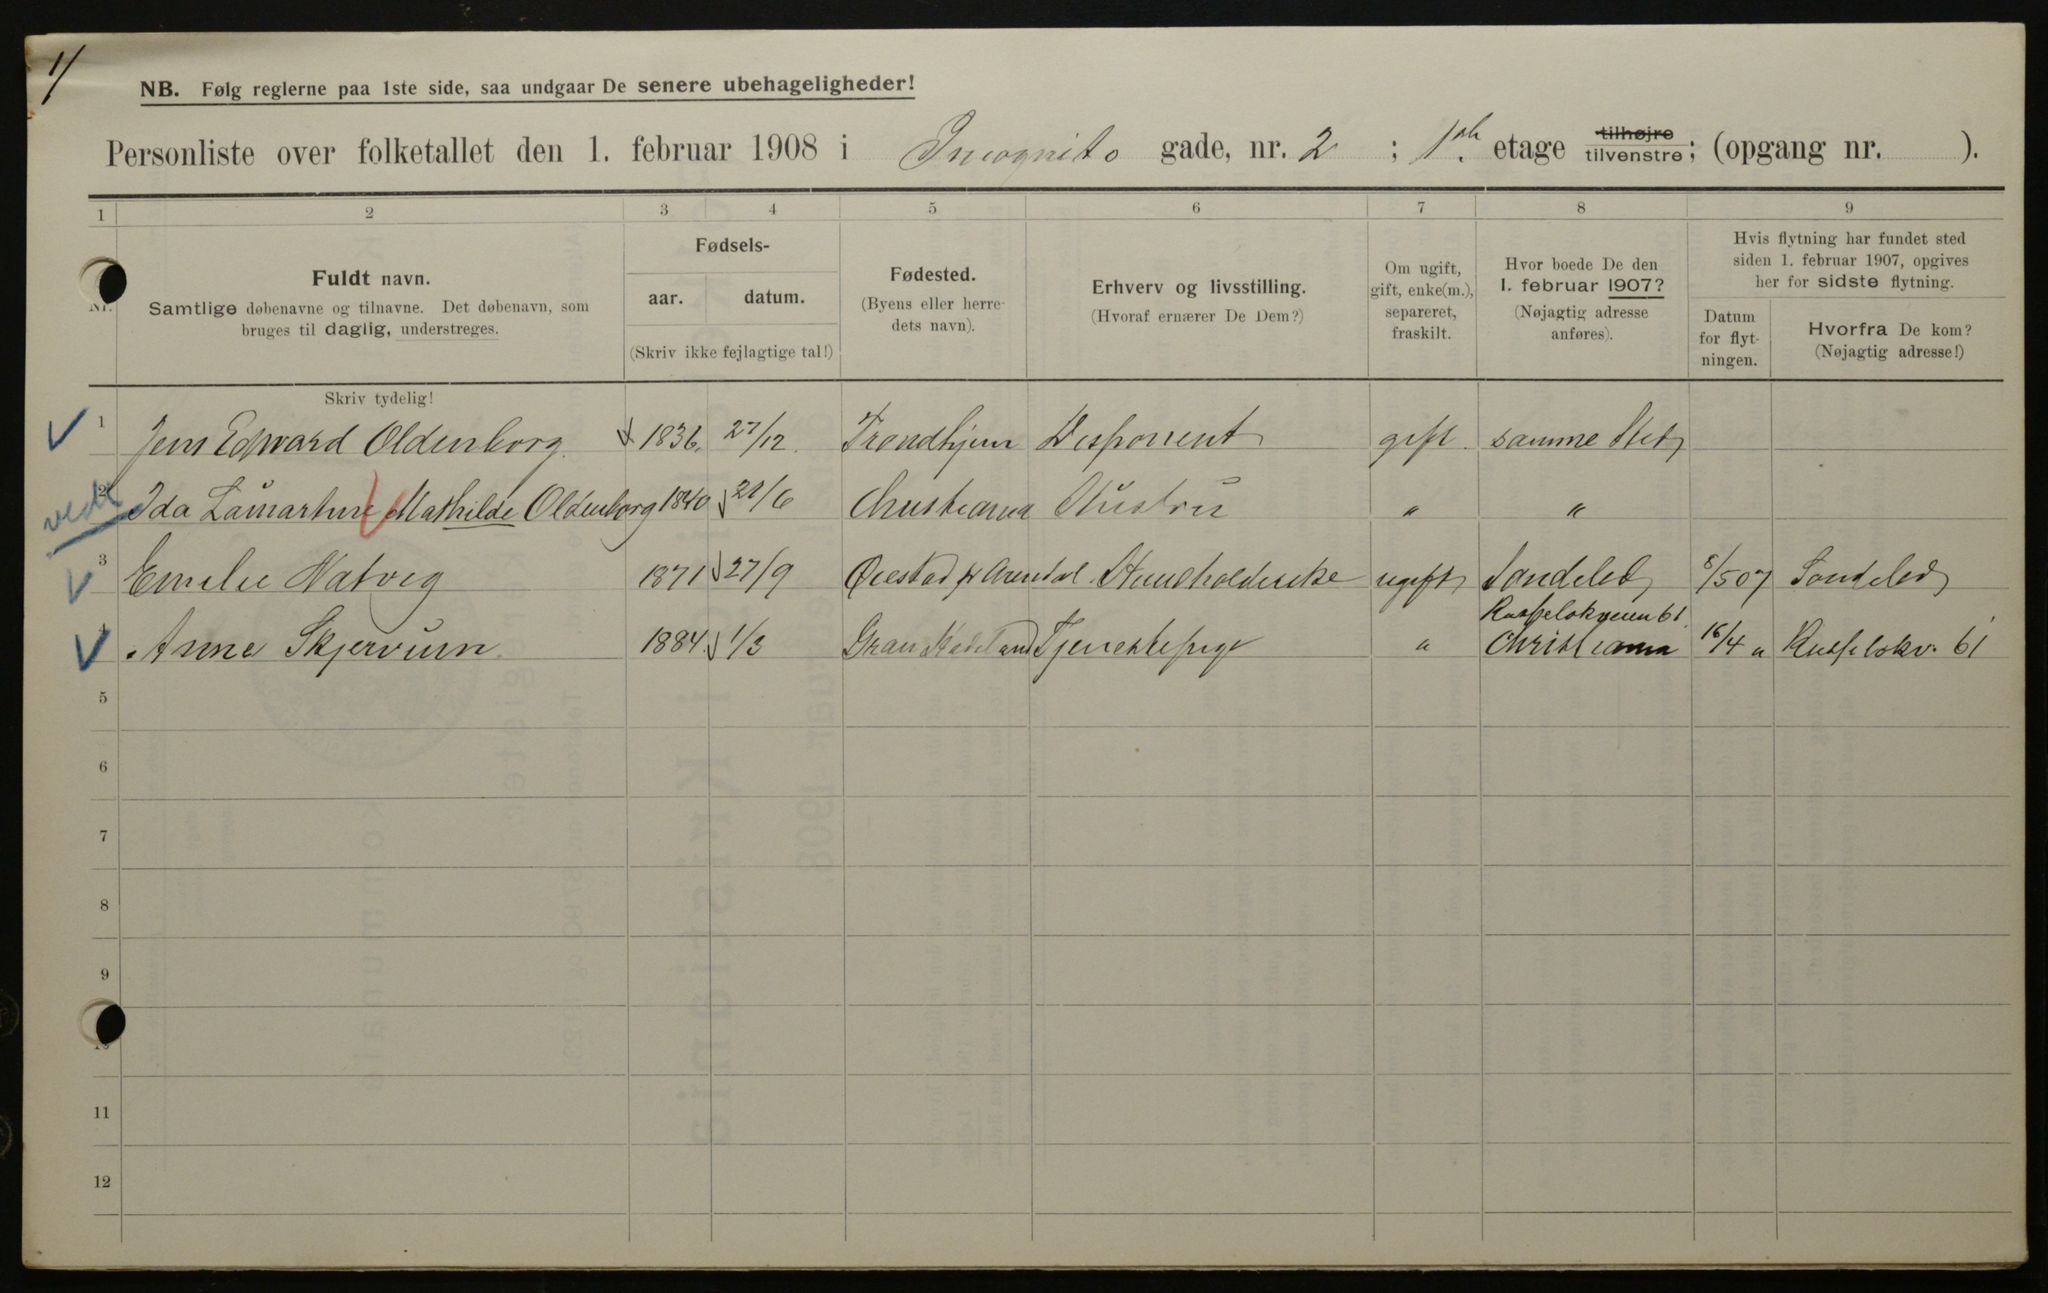 1/
NB. Følg reglerne paa 1ste side, saa undgaar De senere ubehageligheder!
Personliste over folketallet den 1. februar 1908 i Incognito gade, nr. 2 ; 1ste etage tilhøjre tilvenstre; (opgang nr. ).
1 2 3 4 5 6 7 8 9
Nr.
Fuldt navn.
Samtlige døbenavne og tilnavne. Det døbenavn, som
bruges til daglig, understreges.
Skriv tydelig!
Fødsels-
aar. datum.
(Skriv ikke fejlagtige tal!)
Fødested.
(Byens eller herre-
dets navn).
Erhverv og livsstilling.
(Hvoraf ernærer De Dem?)
Om ugift,
gift, enke(m.),
separeret,
fraskilt.
Hvor boede De den
1. februar 1907?
(Nøjagtig adresse
anføres).
Hvis flytning har fundet sted
siden 1. februar 1907, opgives
her for sidste flytning.
Datum
for flyt-
ningen.
Hvorfra De kom?
(Nøjagtig adresse!)
1 Jens Edward Oldenborg 1836. 27/12. Trondhjem Disponent gift. samme Sted
2 Ida Mathilde Oldenborg 1840 21/6 Christiania Hustru " "
3 Emilie Natvig 1871 27/9 Øiestad pr Arendal Huusholderske ugift Sondeled 8/5 07 Sondeled
4 Anne Skjervum 1884. 1/3 Gran Hadeland Tjenestepige " Christiania 16/4 " 61
5
6
7
8
9
10
11
12